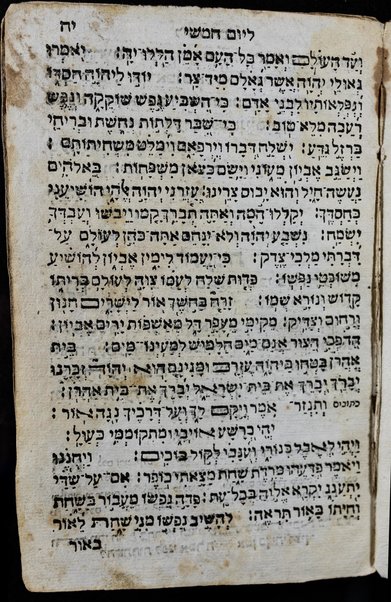 ליום חמשי יה
ועד העולם ואמר כל העם אמן הללויה: יאמרו
גאולי יהוה אשר גאלם מיד צר: יודו ליהוה חסדו
ונפלאותיו לבני אדם: כי השביע נפש שוקקה ונפש
רעבה מלא טוב: כי שבר דלתות נחשת ובריחי
ברזל גדע: ישלח דברו וירפאם וימלט משחיתותם:
וישגב אביון מעוני וישם כצאן משפחות: באלהים
נעשה חיל והוא יבוס צרינו: עזרני יהוה אלהי הושיעני
כחסדך: יקללו המה ואתה תברך קמו ויבשו ועבדך
ישמח: נשבע יהוה ולא ינחם אתה כהן לעולם על
דברתי מלכי צדק: כי יעמוד לימין אביון להושיע
משופטי נפשו: פדות שלח לעמו צוה לעולם בריתו
קדוש ונורא שמו: זרח בחשך אור לישרים חנון
ורחום וצדיק: מקימי מעפר דל מאשפות ירים אביון:
ההפכי הצור אגם מים חלמיש למעינו מים: בית
אהרן בטחו ביהוה עזרם ומגינם הוא: יהוה זכרנו
יברך יברך את בית ישראל יברך את בית אהרן:
כתוכיס ותגזר אמר ויקם לך ועל דרכיך נגה אור:
יהי כרשע אויבי ומתקוממי כעול:
ויהי לאבל כנורי ועוגבי לקול בוכים: ויחננו
ויאמר פדעהו מרדת שחת מצאתי כופר: אם על שדי
יתענג יקרא אלוה בכל עת: פדה נפשו מעבור בשחת
וחיתו באור תראה: להשיב נפשו מני שחת לאור
באור